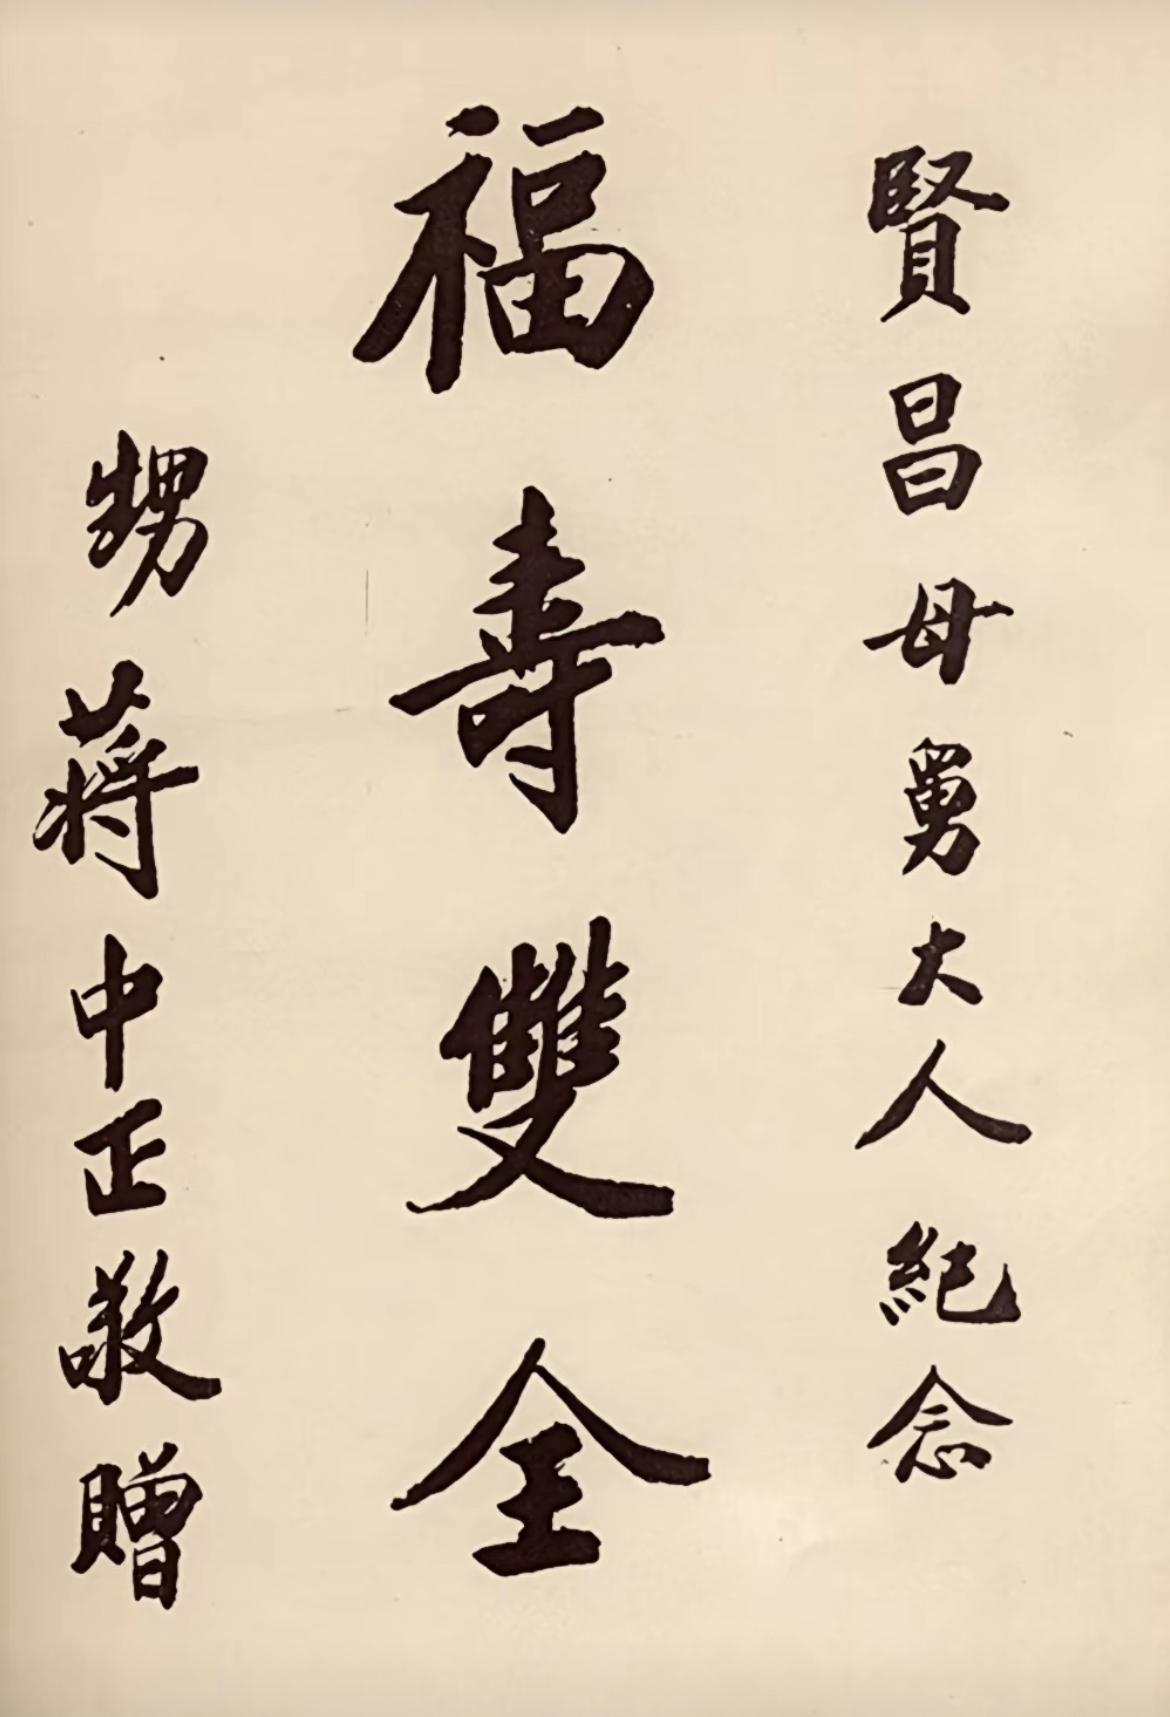 賢昌母舅大人紀念
福壽雙全
甥蔣中正敬贈